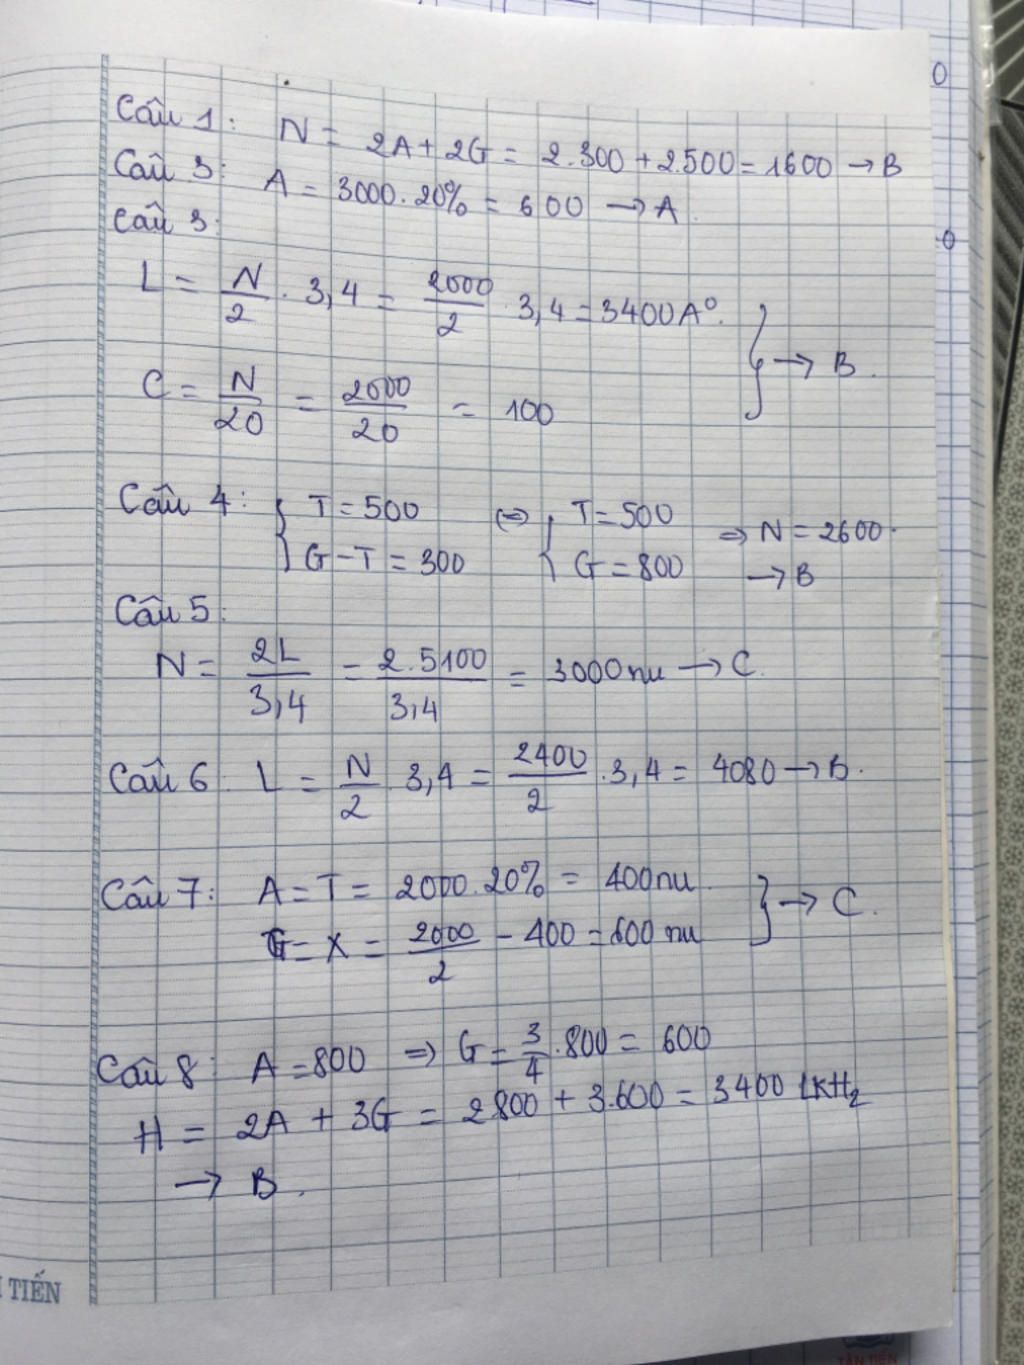 Câu 1: N = 2A + 2G = 2.300 + 2.500 = 1600 → B
Câu 3: A = 3000.20% = 600 → A.
Câu 3:
L = N/2 . 3,4 = 2000/2 . 3,4 = 3400A°. } → B.
C = N/20 = 2000/20 = 100
Câu 4: { T = 500 ⇔ { T = 500 ⇒ N = 2600.
G - T = 300 G = 800 → B
Câu 5:
N = 2L/3,4 = 2.5100/3,4 = 3000nu → C.
Câu 6: L = N/2 . 3,4 = 2400/2 . 3,4 = 4080 → B.
Câu 7: A = T = 2000.20% = 400nu. } → C.
G = X = 2000/2 - 400 = 600 nu
Câu 8: A = 800 ⇒ G = 3/4 . 800 = 600
H = 2A + 3G = 2.800 + 3.600 = 3400 LKH2
→ B.
TIẾN
TÂN TIẾN
0
0